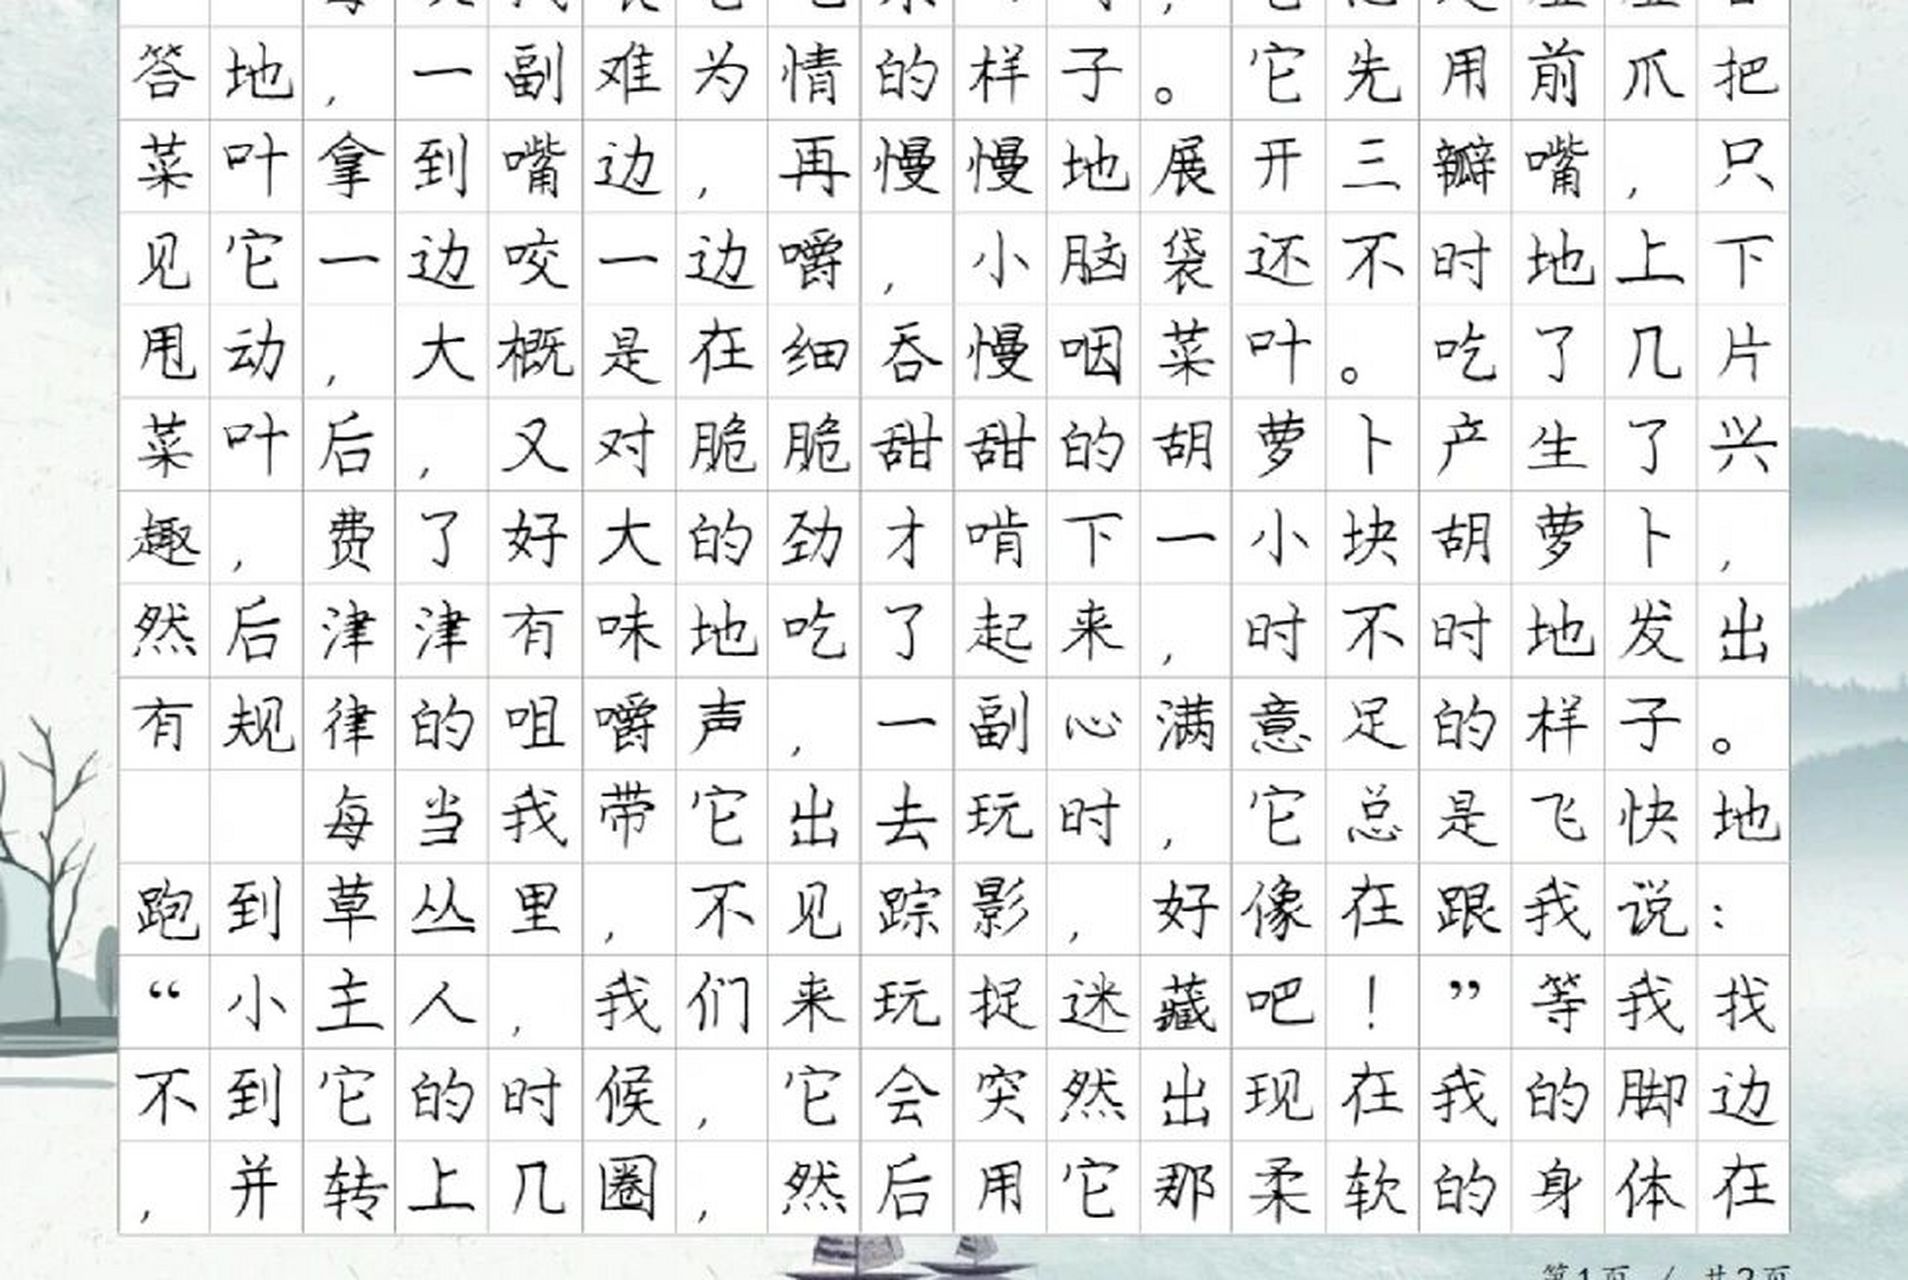 答地，一副难为情的样子。它先用前爪把
菜叶拿到嘴边，再慢慢地展开三瓣嘴，只
见它一边咬一边嚼，小脑袋还不时地上下
甩动，大概是在细吞慢咽菜叶。吃了几片
菜叶后，又对脆脆甜甜的胡萝卜产生了兴
趣，费了好大的劲才啃下一小块胡萝卜，
然后津津有味地吃了起来，时不时地发出
有规律的咀嚼声，一副心满意足的样子。
每当我带它出去玩时，它总是飞快地
跑到草丛里，不见踪影，好像在跟我说：
“小主人，我们来玩捉迷藏吧！”等我找
不到它的时候，它会突然出现在我的脚边
，并转上几圈，然后用它那柔软的身体在
第1页 / 共2页